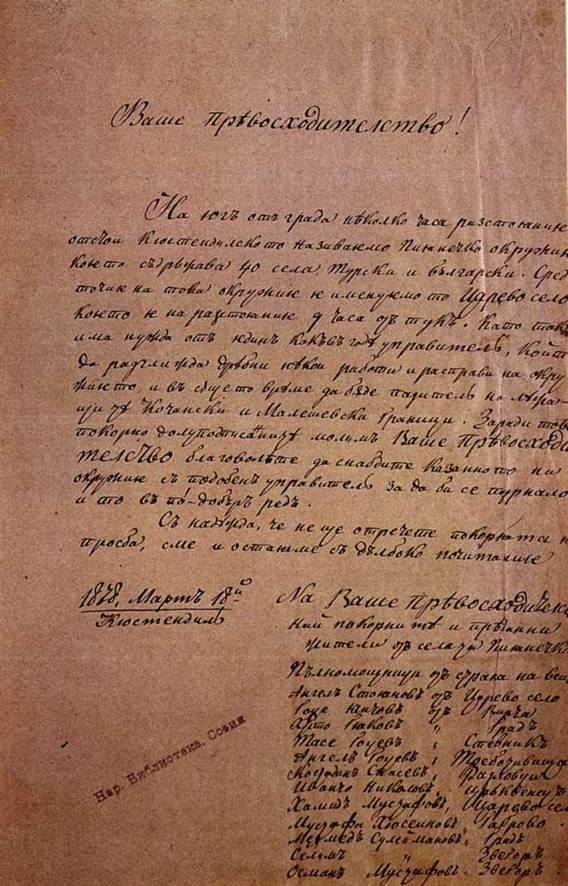 Ваше прѣвосходителство!
На югъ отъ града нѣколко часа разстояние
отстои Кюстендилското називаемо Пиянечко окружие
което съдържава 40 села турски и български. Сред
точие на това окружие е именуемото Царево село
което е на разтояние 9 часа отъ тукъ. Като
има нужда отъ единъ какъвъ годѣ управитель, който
да разглѣжда дрѣбни нѣкои работи и расправи на окру
жието, и въ също то врѣме да бѫде пазитель на
Кочански и Малешевски граници. Заради това
покорно долуподписаните молимъ Ваше прѣвосходи
телство благоволѣте да снабдите казанното ни
окружие съ подобенъ управитель за да би се турнало
и то въ по-добъръ редъ.
Съ надѣжда, че не ще отречете покорната ни
просба, сме и останеме съ дълбоко почитание
1878, Мартъ 18ий
Кюстендилъ
На Ваше прѣвосходителс
ний покорнитѣ и прѣданни
жители отъ села Пиянечк
Пълномощници отъ страна на
Ангелъ Стояновъ отъ Царево село
отъ Вирча
" Градъ
Тасе Гоцевъ " Стевникъ
Ангелъ Гоцевъ "
Костадинъ Спасевъ "
Иванчо Николовъ "
Хамидъ Мустафовъ, Царево сел
Мустафа Хюсеиновъ " Габрово
Мехмедъ Сулеймановъ " Градъ
Селимъ " Звегоръ
Османъ Мустафовъ. Звегоръ.
Нар. Библиотека. София